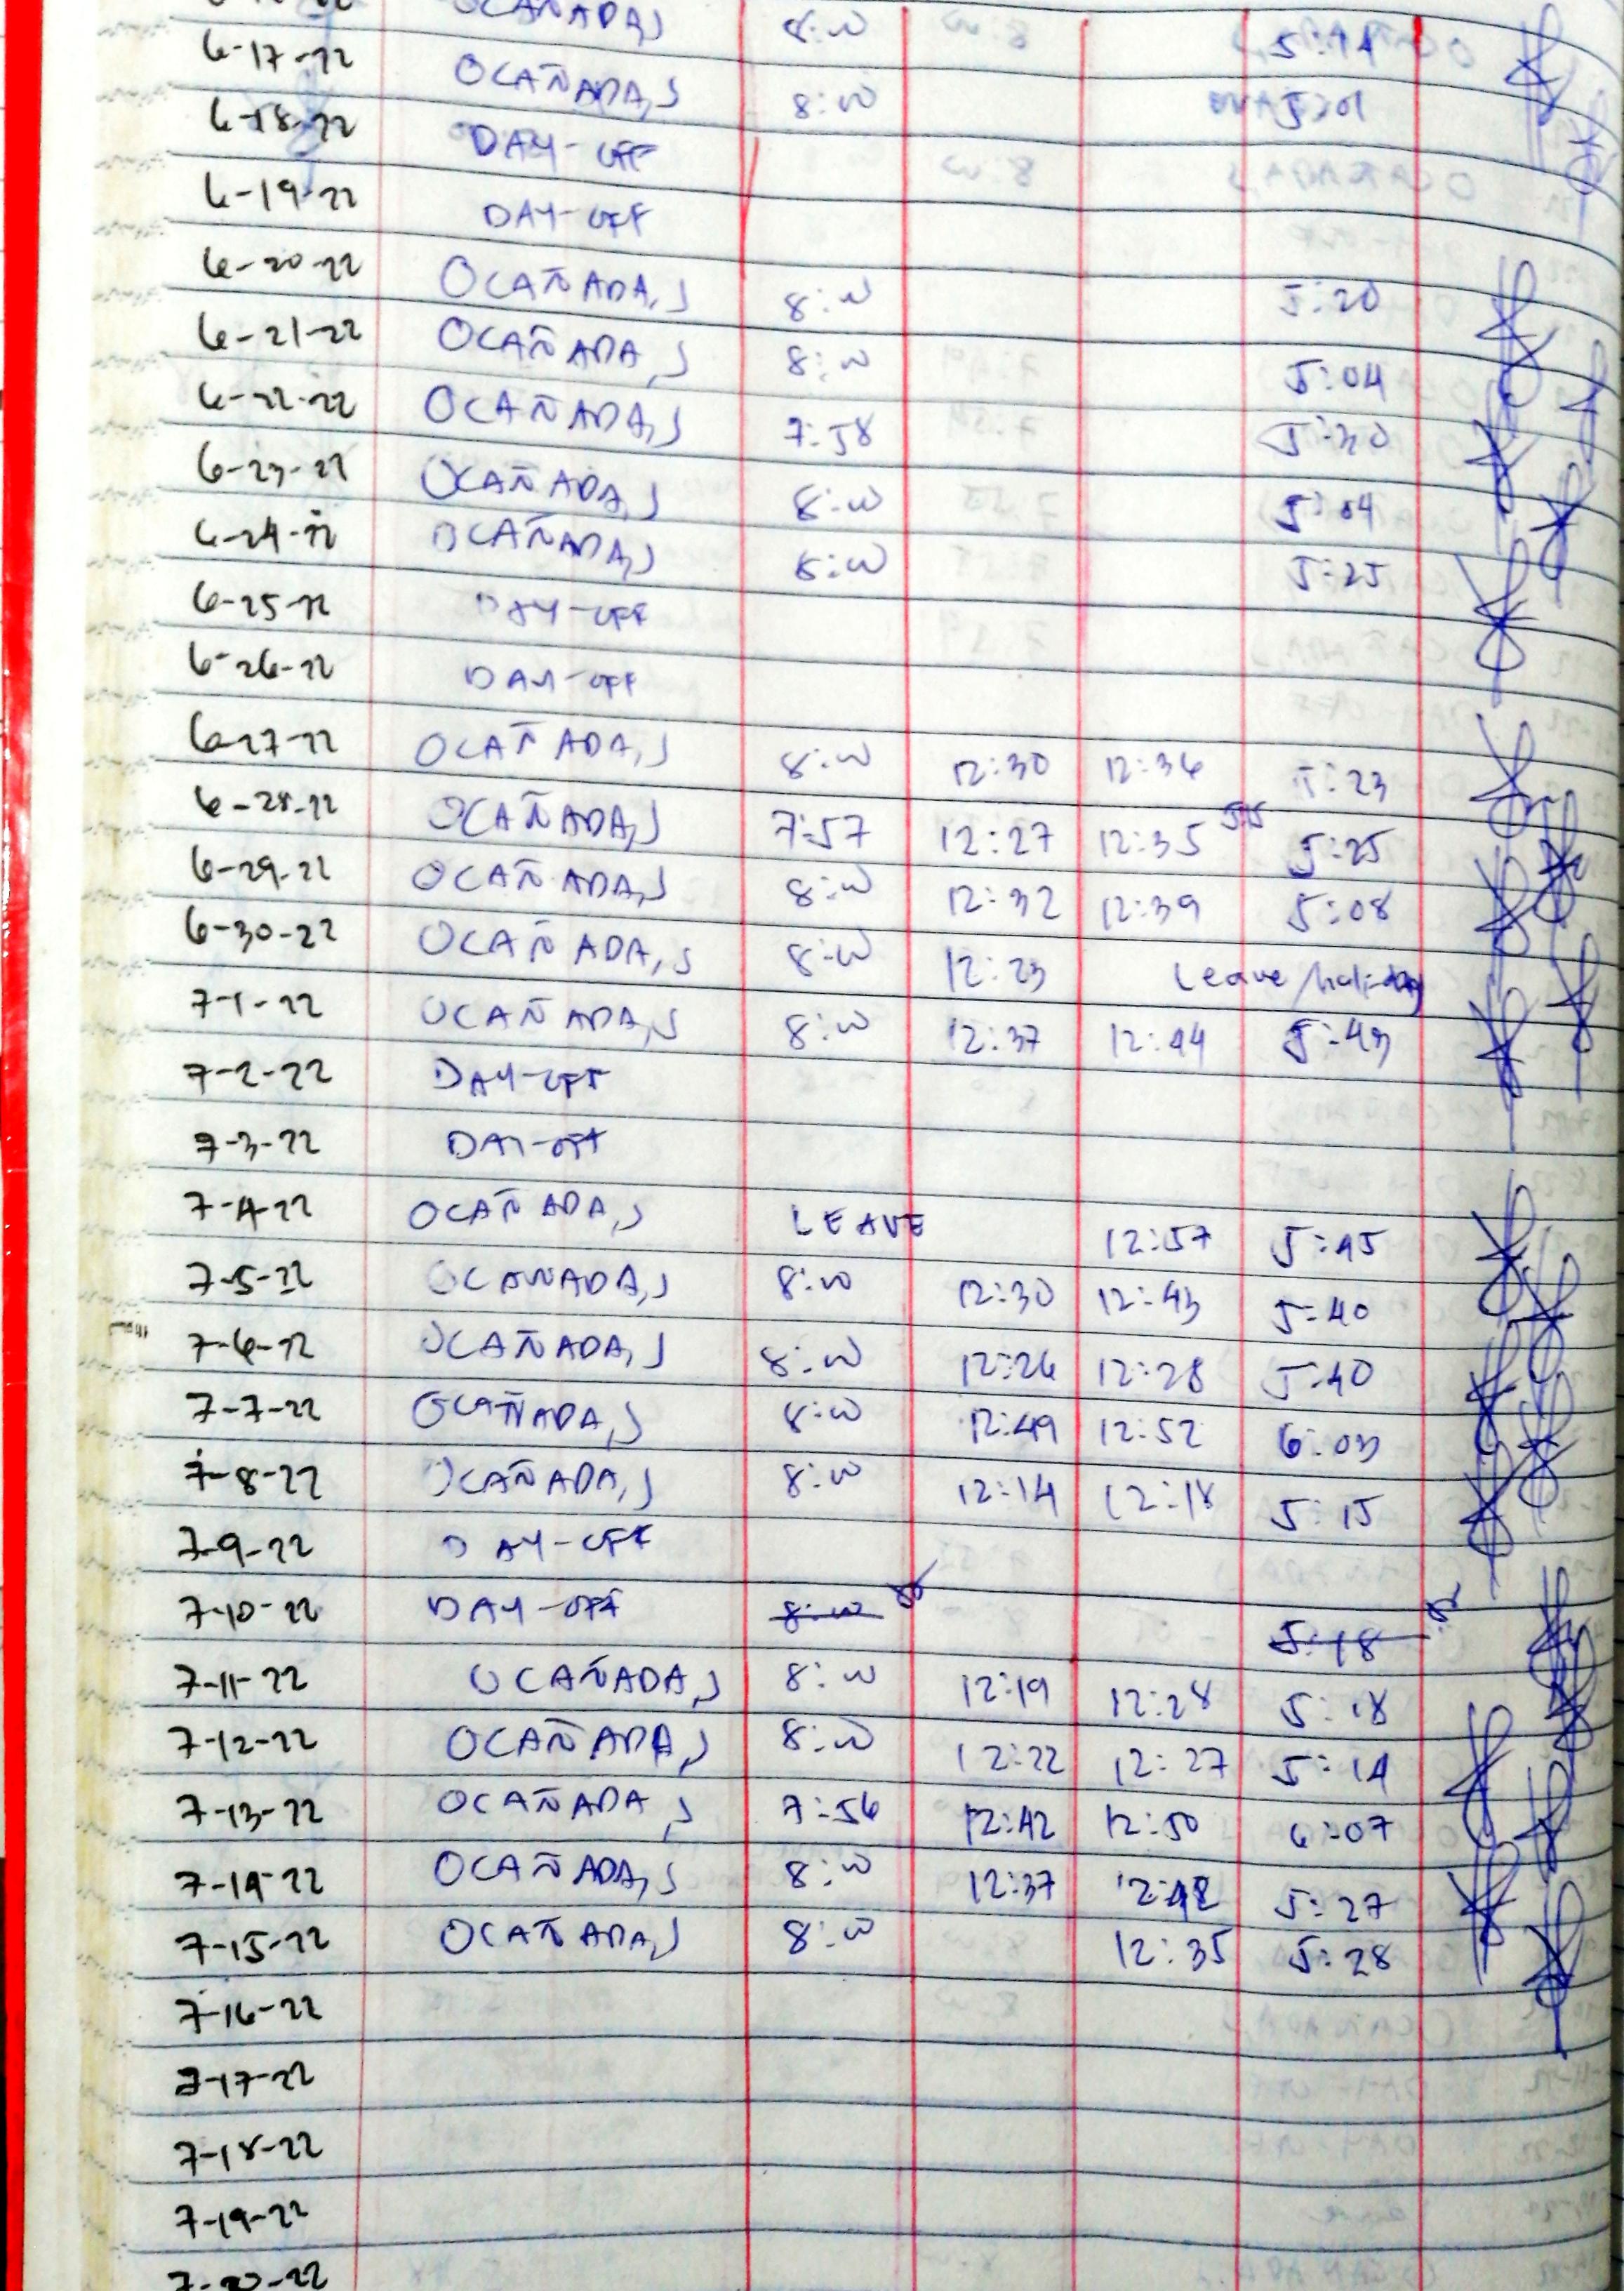 OCAÑADA, J 8:00 5:14
6-17-22 OCAÑADA, J 8:00 5:01
6-18-22 DAY-OFF
6-19-22 DAY-OFF
6-20-22 OCAÑADA, J 8:00 5:20
6-21-22 OCAÑADA, J 8:00 5:04
6-22-22 OCAÑADA, J 7:58 5:30
6-23-22 OCAÑADA, J 8:00 5:04
6-24-22 OCAÑADA, J 8:00 5:25
6-25-22 DAY-OFF
6-26-22 DAY-OFF
6-27-22 OCAÑADA, J 8:00 12:30 12:36 5:23
6-28-22 OCAÑADA, J 7:57 12:27 12:35 5:25
6-29-22 OCAÑADA, J 8:00 12:32 12:39 5:08
6-30-22 OCAÑADA, J 8:00 12:23 Leave/holiday
7-1-22 OCAÑADA, J 8:00 12:37 12:44 5:43
7-2-22 DAY-OFF
7-3-22 DAY-OFF
7-4-22 OCAÑADA, J LEAVE 12:57 5:45
7-5-22 OCAÑADA, J 8:00 12:30 12:43 5:40
7-6-22 OCAÑADA, J 8:00 12:26 12:28 5:40
7-7-22 OCAÑADA, J 8:00 12:49 12:52 6:03
7-8-22 OCAÑADA, J 8:00 12:14 12:18 5:15
7-9-22 DAY-OFF
7-10-22 DAY-OFF 8:00 5:18
7-11-22 OCAÑADA, J 8:00 12:19 12:28 5:18
7-12-22 OCAÑADA, J 8:00 12:22 12:27 5:14
7-13-22 OCAÑADA, J 7:56 12:42 12:50 6:07
7-14-22 OCAÑADA, J 8:00 12:37 12:48 5:27
7-15-22 OCAÑADA, J 8:00 12:35 5:28
7-16-22
7-17-22
7-18-22
7-19-22
7-20-22